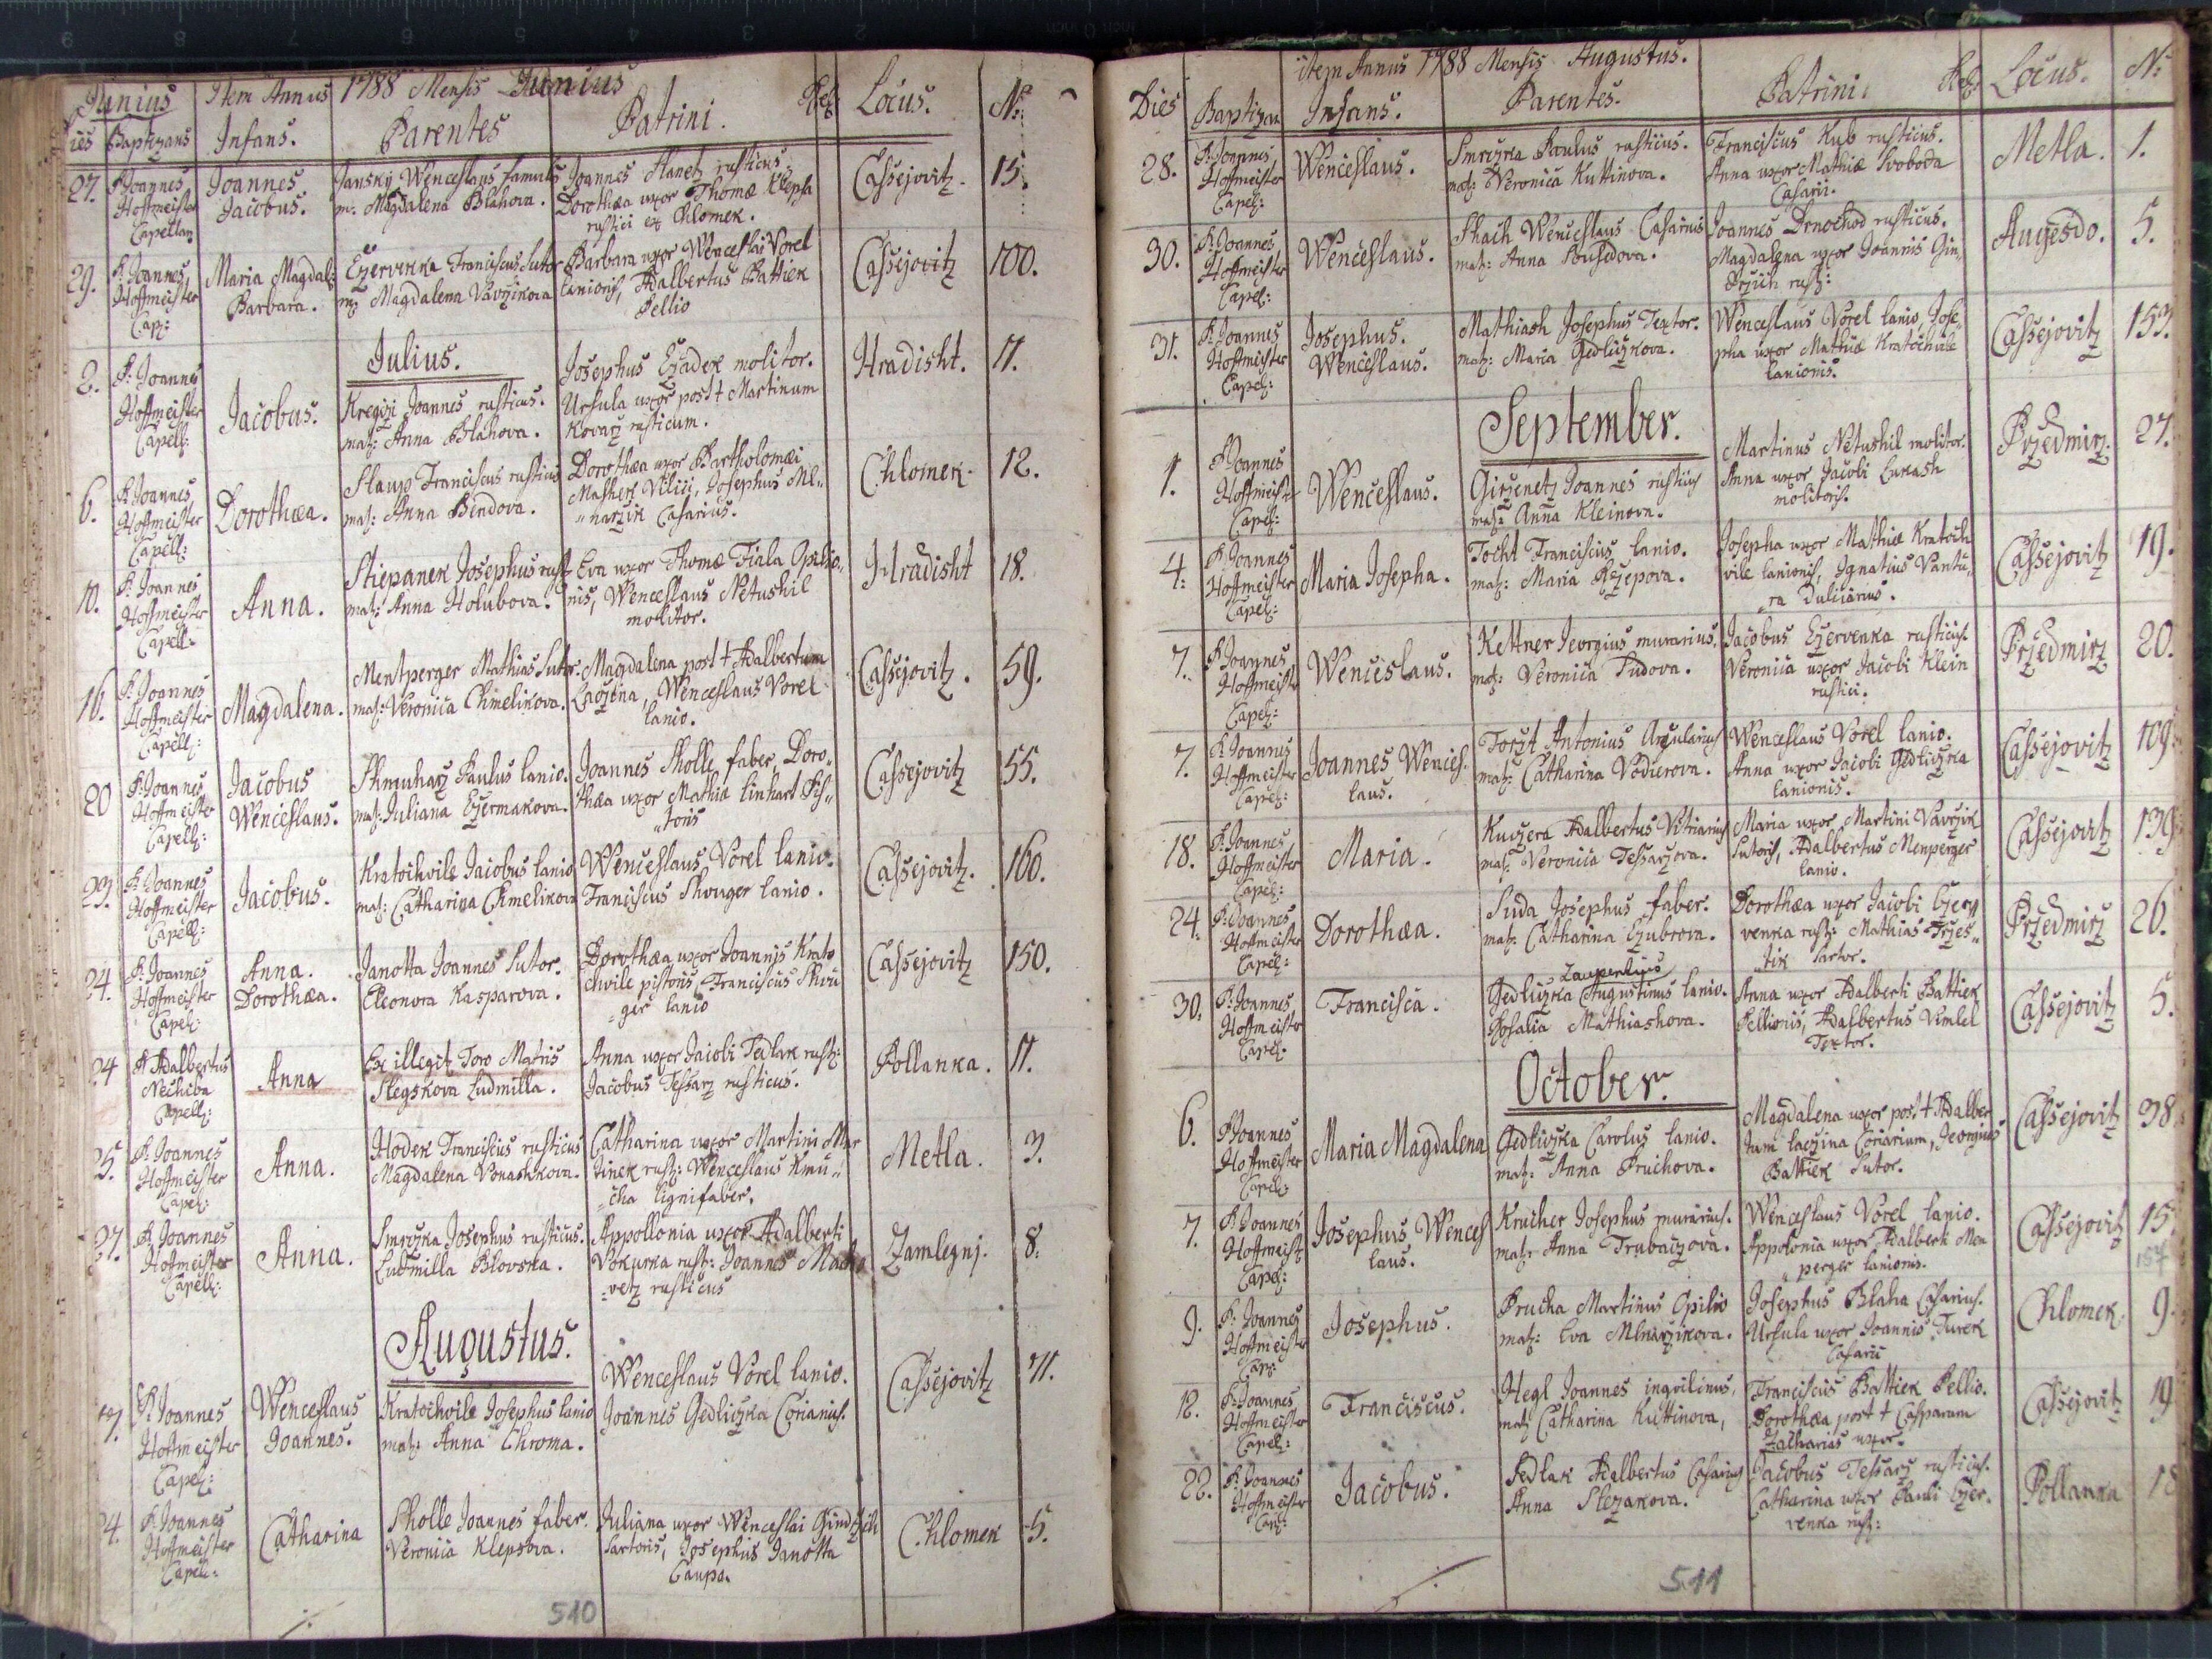 Junius Item Annus 1788 Mensis Junius
ies Baptizans Infans. Parentes Patrini. Locus. No
27. P: Joannes Joannes Jansky Wenceslaus famulus Joannes Hanetz rusticus. Cassejovitz. 15.
Hoffmeister Jacobus. m: Magdalena Blahova. Dorothæa uxor Thomæ Klepsa
Capellan rustici ex Chlomek.
29. P. Joannes Maria Magdal: Czervenka Franciscus Sutor Barbara uxor Wenceslai Vorel Cassejovitz 100.
Hoffmeister Barbara. m: Magdalena Vavrzikova lanionis, Adalbertus Battiek
Cap: Pellio
Julius.
2. P: Joannes Jacobus. Kregizi Joannes rusticus. Josephus Czadek molitor. Hradisht. 11.
Hoffmeister mat: Anna Blahova. Ursula uxor post † Martinum
Capell: Kovarz rusticum.
6. P: Joannes Dorothæa. Slaup Franciscus rusticus Dorothæa uxor Bartholomæi Chlomek. 12.
Hoffmeister mat: Anna Bendova. Mashek Vilici, Josephus Ml„
Capell: „narzik Casarius.
10. P: Joannes Anna. Stiepanek Josephus rust Eva uxor Thomæ Fiala Opilio„ Hradisht 18.
Hoffmeister mat: Anna Holubova. nis, Wenceslaus Netushil
Capell: molitor.
16. P: Joannes Magdalena. Mentperger Mathias Sutor. Magdalena post † Adalbertum Cassejovitz. 59.
Hoffmeister mat: Veronica Chmelikova. Laczina, Wenceslaus Vorel
Capell: lanio.
20 P: Joannes Jacobus Shmuharz Paulus lanio. Joannes Sholle faber, Doro„ Cassejovitz 55.
Hoffmeister Wenceslaus. mat: Juliana Czermakova. thæa uxor Mathiæ Linhart Pis„
Capell: „toris
23. P: Joannes Jacobus. Kratochvile Jacobus lanio Wenceslaus Vorel lanio. Cassejovitz. 160.
Hoffmeister mat: Catharina Chmelikova Franciscus Shouger lanio.
Capell:
24. P: Joannes Anna. Janotta Joannes Sutor. Dorothæa uxor Joannis Krato Cassejovitz 150.
Hoffmeister Dorothæa. Eleonora Kasparova. chvile pistoris, Franciscus Shou
Capel: „ger lanio
24 P: Adalbertus Anna Ex illegit: Toro Matris Anna uxor Jacobi Sedlak rust: Pollanka. 11.
Nechiba Slegskova Ludmilla. Jacobus Tessarz rusticus.
Capell:
25. P: Joannes Anna. Hodek Franciscus rusticus Catharina uxor Martini Mar Metla. 3.
Hoffmeister Magdalena Vonashkova. tinek rust: Wenceslaus Kmu„
Capel: „cha lignifaber.
27. P: Joannes Anna. Smrzka Josephus rusticus. Appollonia uxor Adalberti Zamlegnj. 8.
Hoffmeister Ludmilla Blovska. Vokurka rust: Joannes
Capell: „vetz rusticus
Augustus.
7. P: Joannes Wenceslaus Kratochvile Josephus lanio Wenceslaus Vorel lanio. Cassejovitz 71.
Hoffmeister Joannes. mat: Anna Chroma. Joannes Gedliczka Coriarius.
Capel:
4. P: Joannes Catharina Sholle Joannes faber. Juliana uxor Wenceslai Gindrzich Chlomek 5.
Hoffmeister Veronica Klepsova. Sartoris, Josephus Janotta
Capel: Caupo.
510
item Annus 1788 Mensis Augustus.
Dies Baptizan Infans. Parentes. Patrini. Locus. No:
28. P: Joannes Wenceslaus. Smrzka Paulus rusticus. Franciscus Kub rusticus. Metla. 1.
Hoffmeister mat: Veronica Kuttinova. Anna uxor Mathiæ Svoboda
Capel: Casarii.
30. P: Joannes Wenceslaus. Shach Wenceslaus Casarius Joannes Drnochod rusticus. Augesdo. 5.
Hoffmeister mat: Anna Sousedova. Magdalena uxor Joannis Gin„
Capel: drzich rust:
31. P: Joannes Josephus. Mathiash Josephus Textor. Wenceslaus Vorel lanio, Jose„ Cassejovitz 153.
Hoffmeister Wenceslaus. mat: Maria Gedliczkova. pha uxor Mathiæ Kratochvile
Capel: lanionis.
September.
1. P: Joannes Wenceslaus. Girzenetz Joannes rusticus Martinus Netushil molitor. Przedmirz. 27.
Hoffmeister mat: Anna Kleinova. Anna uxor Jacobi Lukash
Capel: molitoris.
4. P: Joannes Maria Josepha. Tocht Franciscus lanio. Josepha uxor Mathiæ Kratoch Cassejovitz 19.
Hoffmeister mat: Maria Rzepova. vile lanionis, Ignatius Vantu„
Capel: „ra Dulciarius.
7. P: Joannes Wenceslaus. Kettner Georgius murarius. Jacobus Czervenka rusticus. Przedmirz 20.
Hoffmeister mat: Veronica Sudova. Veronica uxor Jacobi Klein
Capel: rustici.
7. P: Joannes Joannes Wences Torzt Antonius Arcularius Wenceslaus Vorel lanio. Cassejovitz 109.
Hoffmeister laus. mat: Catharina Vodierova. Anna uxor Jacobi Gedliczka
Capel: lanionis.
18. P: Joannes Maria. Kuczera Adalbertus Vitriarius Maria uxor Martini Vavrzik Cassejovitz 139
Hoffmeister mat: Veronica Tessarzova. Sutoris, Adalbertus Menperger
Capel: lanio.
24. P: Joannes Dorothæa. Suda Josephus faber. Dorothæa uxor Jacobi Czer„ Przedmirz 26.
Hoffmeister mat: Catharina Czubrova. venka rust: Mathias Trzes„
Capel: „tik Sartor.
30. P: Joannes Francisca. Gedliczka Augustinus lanio. Anna uxor Adalberti Battiek Cassejovitz 5.
Hoffmeister Rosalia Mathiashova. Pellionis, Adalbertus Vimlel
Capel. Textor.
October.
6. P: Joannes Maria Magdalena Gedliczka Carolus lanio. Magdalena uxor post † Adalber Cassejovitz 38.
Hoffmeister mat: Anna Pruchova. tum laczina Coriarium, Georgius
Capel: Battiek Sutor.
7. P: Joannes Josephus Wences Krucher Josephus murarius. Wenceslaus Vorel lanio. Cassejovitz 15.
Hoffmeist laus. mat: Anna Trubaczova. Appolonia uxor Adalberk Men 157
Capel: „perger lanionis.
9. P: Joannes Josephus. Prucha Martinus Opilio Josephus Blaha Casarius. Chlomek. 9.
Hoffmeister mat: Eva Mlnarzikova. Ursula uxor Joannis Turek
Cap: Casarii
12. P: Joannes Franciscus. Hegl Joannes inquilinus, Franciscus Battiek Pellio. Cassejovitz 19
Hoffmeister mat: Catharina Kuttinova, Dorothæa post † Casparum
Capel: Zacharias uxor.
22. P: Joannes Jacobus. Sedlak Adalbertus Casarius Jacobus Tessarz rusticus. Pollanka 18
Hoffmeister Anna Slezakova. Catharina uxor Pauli Czer„
Cap: venka rust:
511